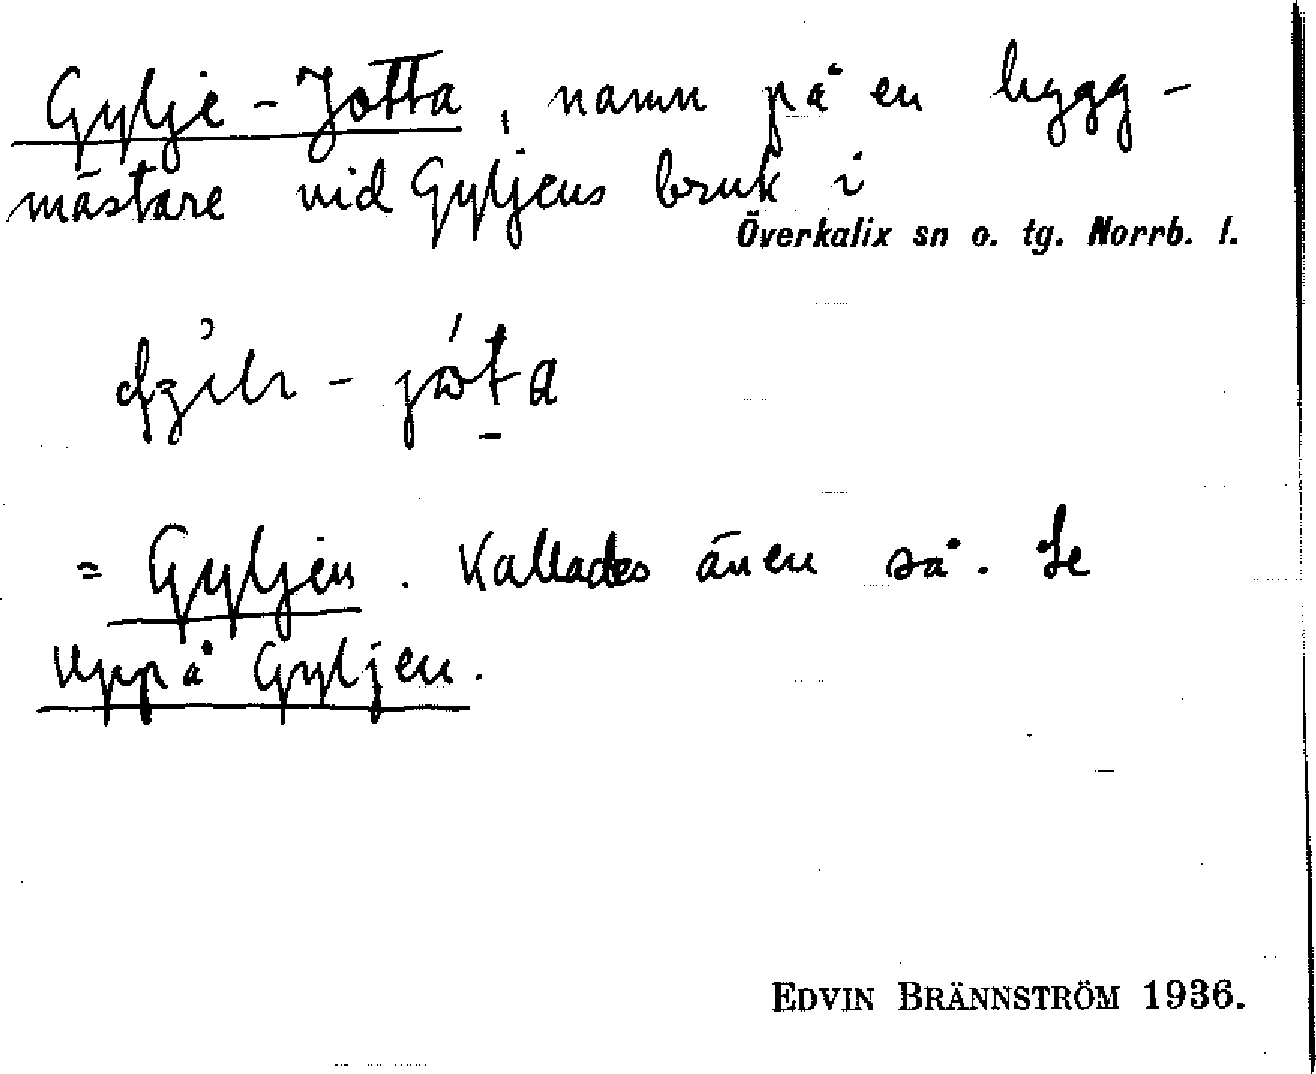 Gylje-Jotta, namn på en bygg-
mästare vid Gyljens bruk i
Överkalix sn o. tg. Norrb. l.
= Gyljen. Kallades även så. Se
Uppå Gyljen.
EDVIN BRÄNNSTRÖM 1936.